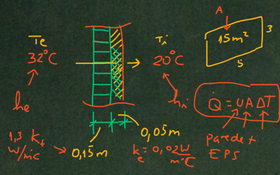 Te
32°C
he
Ti
20°C
hi
A
15m²
3
5
Q̇ = UAΔT
pared +
EPS
1,3 Kt
W/m°C
0,15m
0,05m
k = 0,02W
e m°C